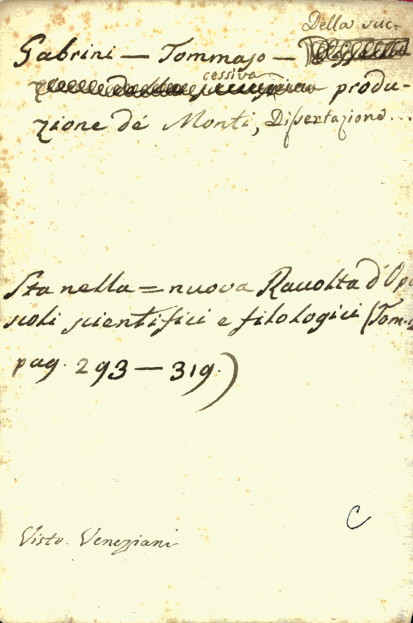 Della suc-
Gabrini — Tommaso —
cessiva
produ-
zione de' Monti, Dissertazione...
Sta nella = nuova Raccolta d'Opu
scoli scientifici e filologici (Tom.
pag. 293 — 319.)
C
Visto. Veneziani